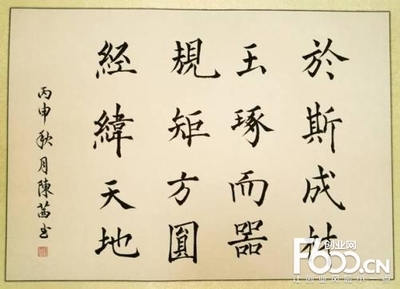 於斯成材
玉琢而器
規矩方圓
經緯天地
丙申秋月陳茜书
创业网